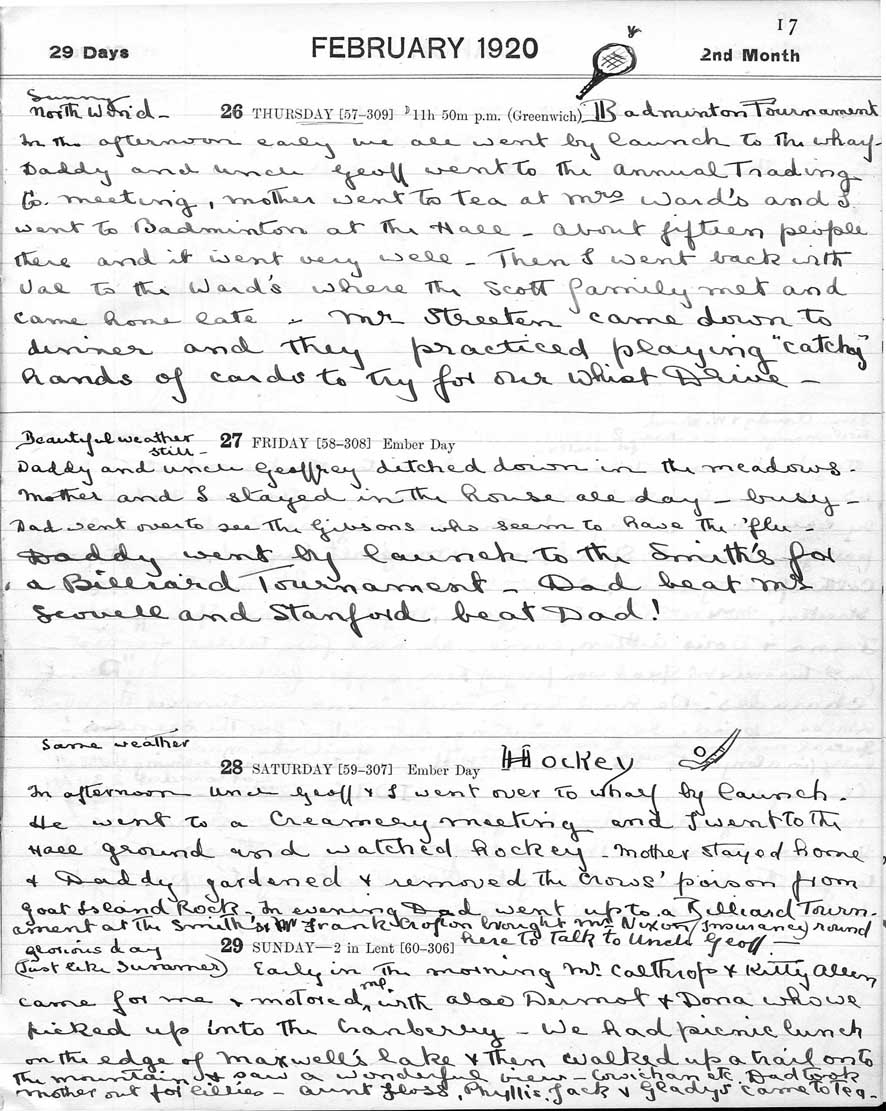 17
29 Days FEBRUARY 1920 2nd Month
Sunny
North Wind - 26 THURSDAY [57–309] 11h 50m p.m. (Greenwich) Badminton Tournament
In the afternoon early we all went by launch to the wharf.
Daddy and uncle Geoff went to the annual Trading
Co. meeting, mother went to tea at Mrs Ward's and I
went to Badminton at the Hall - about fifteen people
there and it went very well - Then I went back with
Val to the Ward's where the Scott family met and
came home late - Mr Streeten came down to
dinner and they practiced playing "catchy"
hands of cards to try for our Whist Drive -
Beautiful weather
still - 27 FRIDAY [58–308] Ember Day
Daddy and uncle Geoffrey ditched down in the meadows.
Mother and I stayed in the house all day - busy -
Dad went over to see the Gibsons who seem to have the 'flu -
Daddy went by launch to the Smith's for
a Billiard Tournament - Dad beat Mr
Scovell and Stanford beat Dad!
Same weather
28 SATURDAY [59–307] Ember Day Hockey
In afternoon uncle Geoff & I went over to wharf by launch.
He went to a Creamery meeting and I went to the
Hall ground and watched hockey - Mother stayed home
& Daddy gardened & removed the crows' poison from
Goat Island Rock - In evening Dad went up to a Billiard Tourn-
ament at the Smith's & Mr Frank Crofton brought Mr Nixon (Insurance) round
here to talk to Uncle Geoff —
glorious day 29 SUNDAY—2 in Lent [60–306]
(Just like Summer) Early in the morning Mr. Calthrop & Kitty Allen
came for me & motored me with also Dermot & Dona who we
picked up into the Cranberry - We had picnic lunch
on the edge of Maxwell's Lake & then walked up a trail onto
the mountain & saw a wonderful view - Cowichan etc. Dad took
mother out for lillies - aunt Floss, Phyllis, Jack & Gladys came to tea -